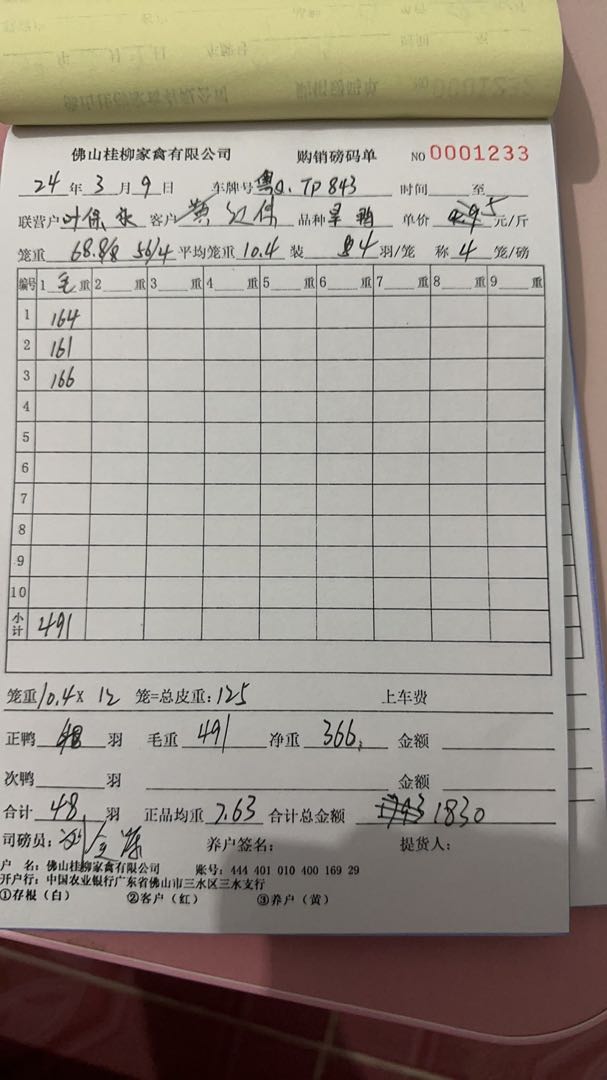 佛山桂柳家禽有限公司 购销磅码单 NO 0001233
24 年 3 月 9 日 车牌号粤Q.TP843 时间 至
联营户叶保永 客户黄江保 品种 鸭 单价 5 元/斤
笼重 68.8/8 56/4 平均笼重 10.4 装 4 羽/笼 称 4 笼/磅
编号 1 毛 重 2 重 3 重 4 重 5 重 6 重 7 重 8 重 9 重
1 164
2 161
3 166
4
5
6
7
8
9
10
小计 491
笼重10.4× 12 笼=总皮重:125 上车费
正鸭 48 羽 毛重 491 净重 366 金额
次鸭 羽 金额
合计 48 羽 正品均重 7.63 合计总金额 1830
司磅员: 养户签名: 提货人:
户 名: 佛山桂柳家禽有限公司 账号: 444 401 010 400 169 29
开户行: 中国农业银行广东省佛山市三水区三水支行
①存根(白) ②客户(红) ③养户(黄)